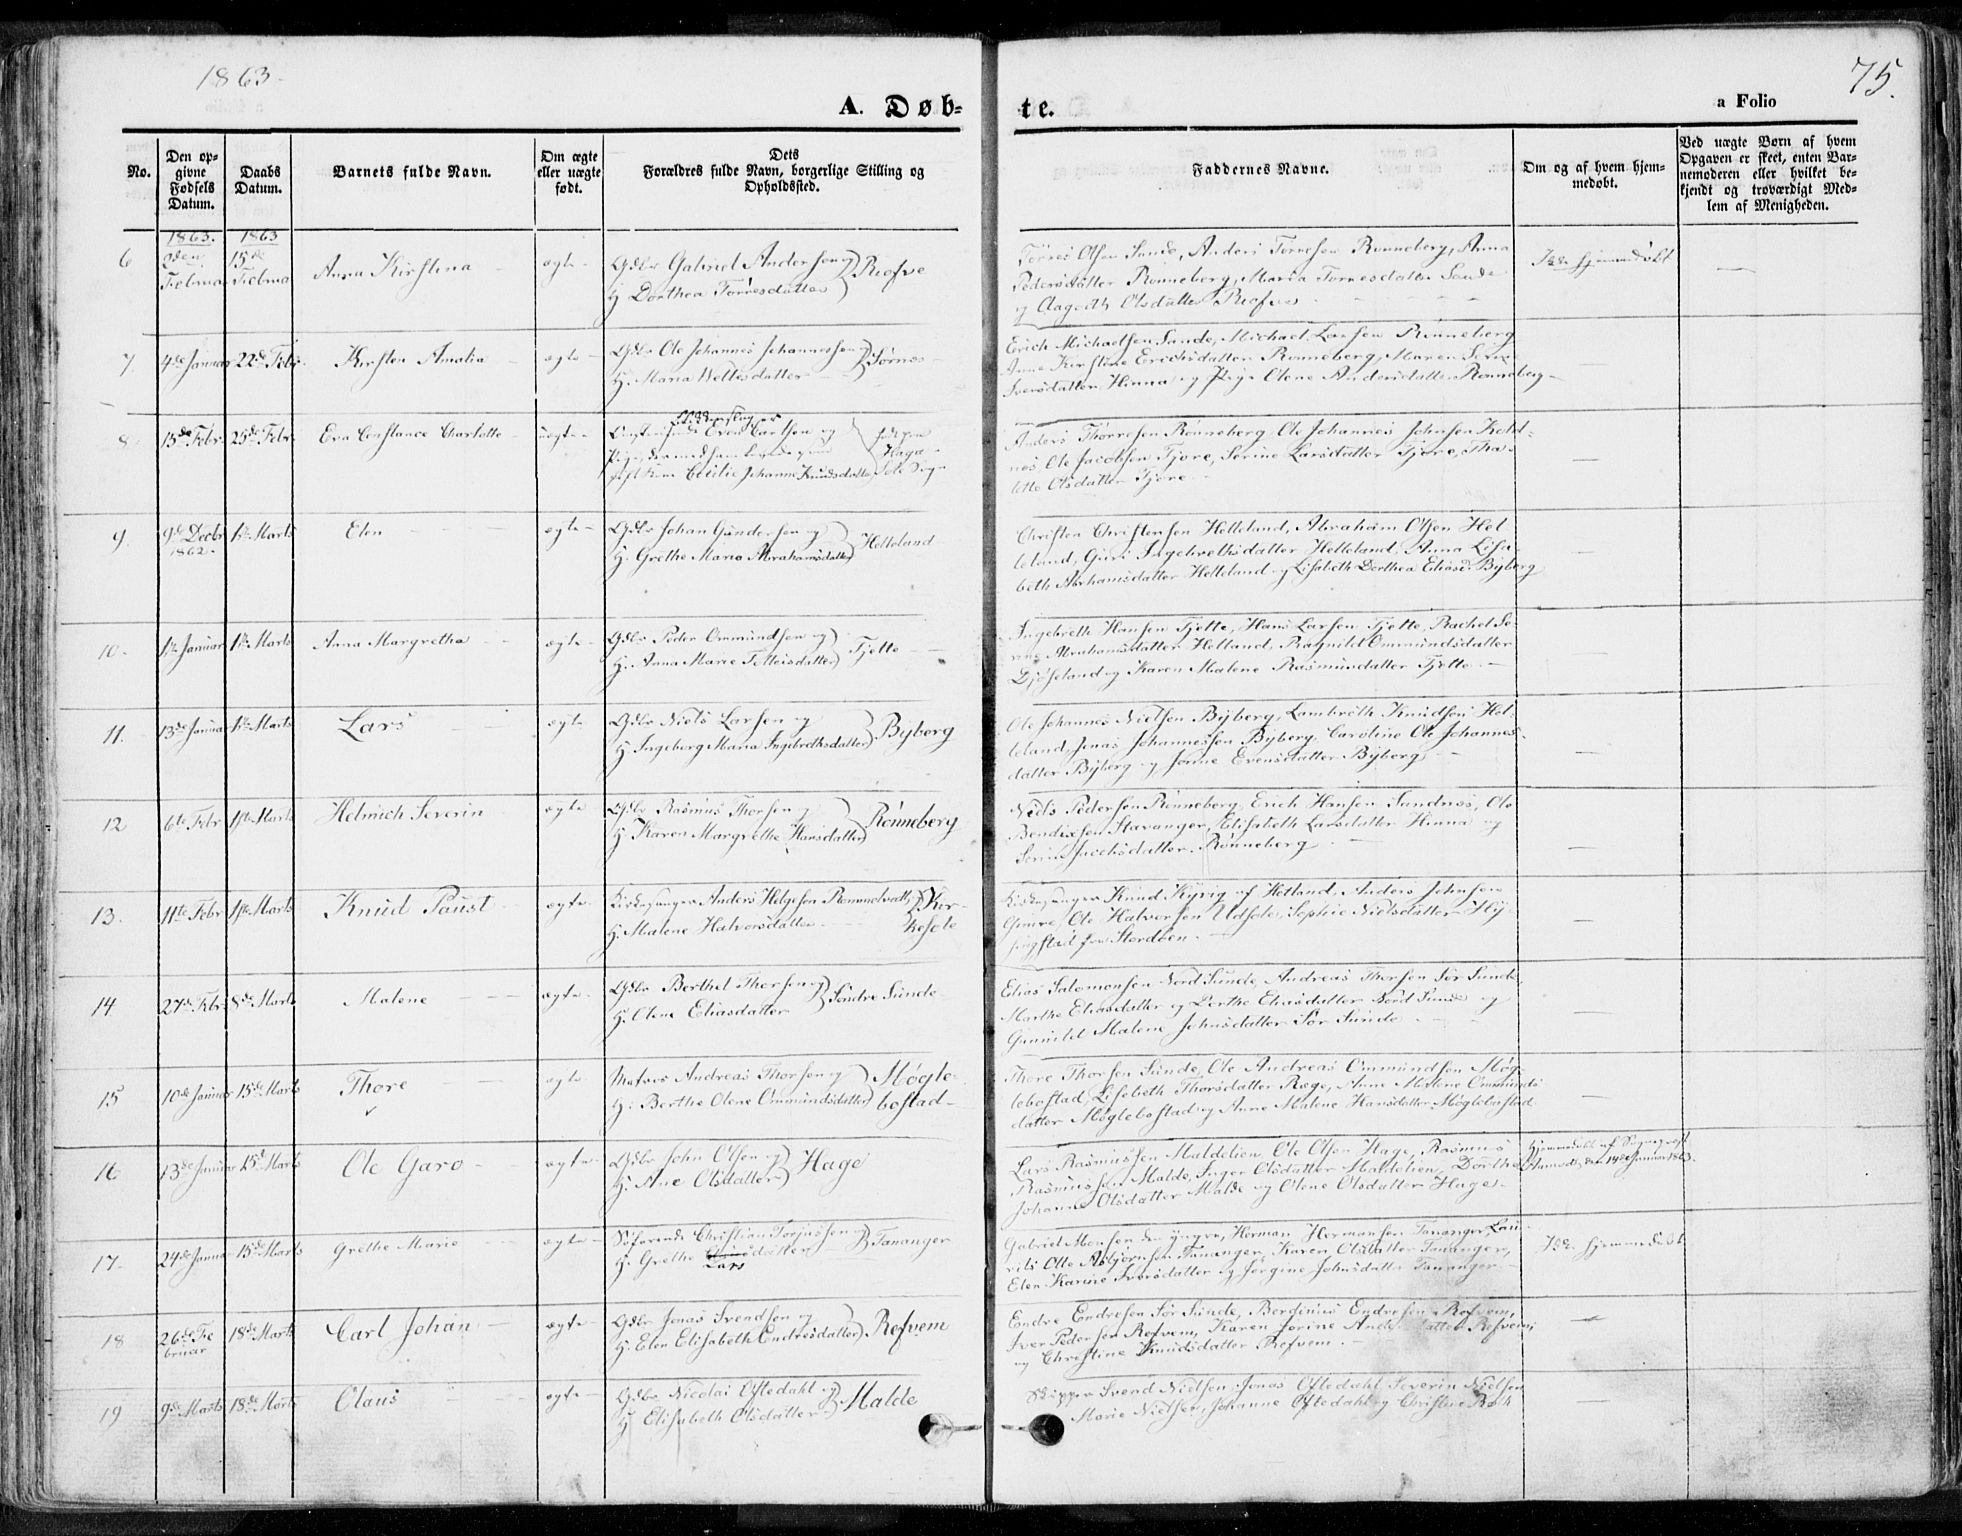 1863.
75.
A. Døb=
te.
a Folio
No.
Den op=
givne
Fødsels
Datum.
Daabs
Datum.
Barnets fulde Navn.
Om ægte
eller uægte
født.
Dets
Forældres fulde Navn, borgerlige Stilling og
Opholdssted.
Faddernes Navne.
Om og af hvem hjem=
medøbt.
Ved uægte Børn af hvem
Opgaven er skeet, enten Bar=
nemoderen eller hvilket be=
kjendt og troværdigt Med=
lem af Menigheden.
1863. 1863
6 15de Februar Anna Kirstina ægte
Gabriel Andersen og
H. Dorthea Tørresdatter
Tørres Olsen Sunde, Anders Tørresen Rønneberg, Anna
Pedersdatter Rønneberg, Maria Torresdatter Sunde
og Olsdatter
hjemmedøbt
7. 4de Januar 22de Febr. Kirsten Amalia ægte
Ole Johannes Johannessen og
H. Maria
Erich Michaelsen Sunde, Michael Larsen Rønneberg
Anne Kirstine Erichsdatter Rønneberg, Maren
Iversdatter Hinna og Pige Olene Andersdatter Rønneberg
8. 13de Febr. 25de Febr. Eva Constance Charlotte uægte
Even Bartsen og
Cecilie Johanne Knudsdatter
Haga
Sole Sogn
Anders Thorresen Rønneberg, Ole Johannes Johnsen
Ole Jacobsen Tjore, Serine Larsdatter Tjore,
Olsdatter Tjore
9. 9de Decbr 1862. 1ste Marts Elen ægte
Johan Gundersen og
H. Grethe Maria Abrahamsdatter
Helleland
Christen Christensen Helleland, Abraham Olsen Hel
leland, Guri Ingebrethsdatter Helleland, Anna Lisa
beth Abrahamsdatter Helleland og Lisabeth Dorthea Eliasd. Byberg
10. 1ste Januar 1ste Marts Anna Margretha ægte
Peder Ommundsen og
H. Anna Marie
Tjette
Ingebreth Hansen Tjette, Hans Larsen Tjette, Rachel Se
rine Abrahamsdatter Helland, Ragnild Ommundsdatter
og Karen Malene Rasmusdatter Tjette
11. 13de Januar 1ste Marts Lars ægte
Niels Larsen og
H. Ingeborg Maria Ingebrethsdatter
Byberg
Ole Johannes Nielsen Byberg, Lambreth Knudsen Hel
leland, Jonas Johannessen Byberg, Caroline Ole Johannes
datter Byberg og Evensdatter Byberg
12 6te Febr 1ste Marts Helmich Severin ægte
Rasmus Thorsen og
H. Karen Margrethe Hansdatter
Rønneberg
Niels Pedersen Rønneberg, Erich Hansen Sandnes, Ole
Bendixsen Stavanger, Elisabeth Larsdatter Hinna og
Serine Jacobsdatter Rønneberg
13. 11te Febr 1ste Marts Knud Paust ægte
Kirkesanger Anders Helgesen
H. Malene Halvorsdatter
Kir-
kesole
Kirkesanger Knud Kyrig af Hetland, Anders Johnsen
Gimre, Ole Halvorsen Udsole, Sophie Nielsdatter Hy
fra Stordøen
14. 27de Febr. 8de Marts Malene ægte
Berthel Thorsen og
H. Olene Eliasdatter
Søndre Sunde
Elias Salomonsen Nord Sunde, Andreas Thorsen Sør Sunde,
Marthe Eliasdatter og Berthe Eliasdatter Nord Sunde og
Gunnild Malene Johnsdatter Sør Sunde
15 10de Januar 15de Marts Thore ægte
Andreas Thorsen og
H. Berthe Olene Ommundsdatter
Møgle-
bostad
Thore Thorsen Sunde, Ole Andreas Ommundsen Møg-
lebostad, Lisebeth Thorsdatter Ræge, Anne Malene Ommunds
datter Møglebostad og Anne Malene Hansdatter Møglebostad
16 13de Januar 15de Marts Ole Garo ægte
John Olsen og
H. Ane Olsdatter
Hage
Lars Rasmussen Maldelien, Ole Olsen Hage, Rasmus
Rasmussen Malde, Inger Olsdatter Maldelien, Dorthe
Johanne Olsdatter Malde og Olene Olsdatter Hage
Hjemmedøbt af Sognepræst
den 14de Januar 1863.
17. 24de Januar 15de Marts Grethe Marie ægte
Søfarende Christian Torjusen og
H. Grethe datter
Lars
Tananger
Gabriel Monsen den yngre, Herman Hermansen Tananger, Lau-
rits Olle Asbjørnsen Tananger, Karen Olsdatter Tananger,
Elen Karine Iversdatter og Jørgine Johnsdatter Tananger
hjemmedøbt
18 26de Fe
bruar 18de Marts Carl Johan ægte
Jonas Svendsen og
H. Elen Elisabeth Endresdatter
Refvem
Endre Endresen Sør Sunde, Berginius Endresen Refvem,
Iver Pedersen Refvem, Karen Jorine Refvem,
og Christine Knudsdatter Refvem
19 9de Marts 18de Marts Olaus ægte
Nicolai Oftedahl og
H. Elisabeth Olsdatter
Malde
Skipper Svend Nielsen, Jonas Oftedahl, Severin Nielsen
Marie Nielsen, Johanne Oftedahl og Christine